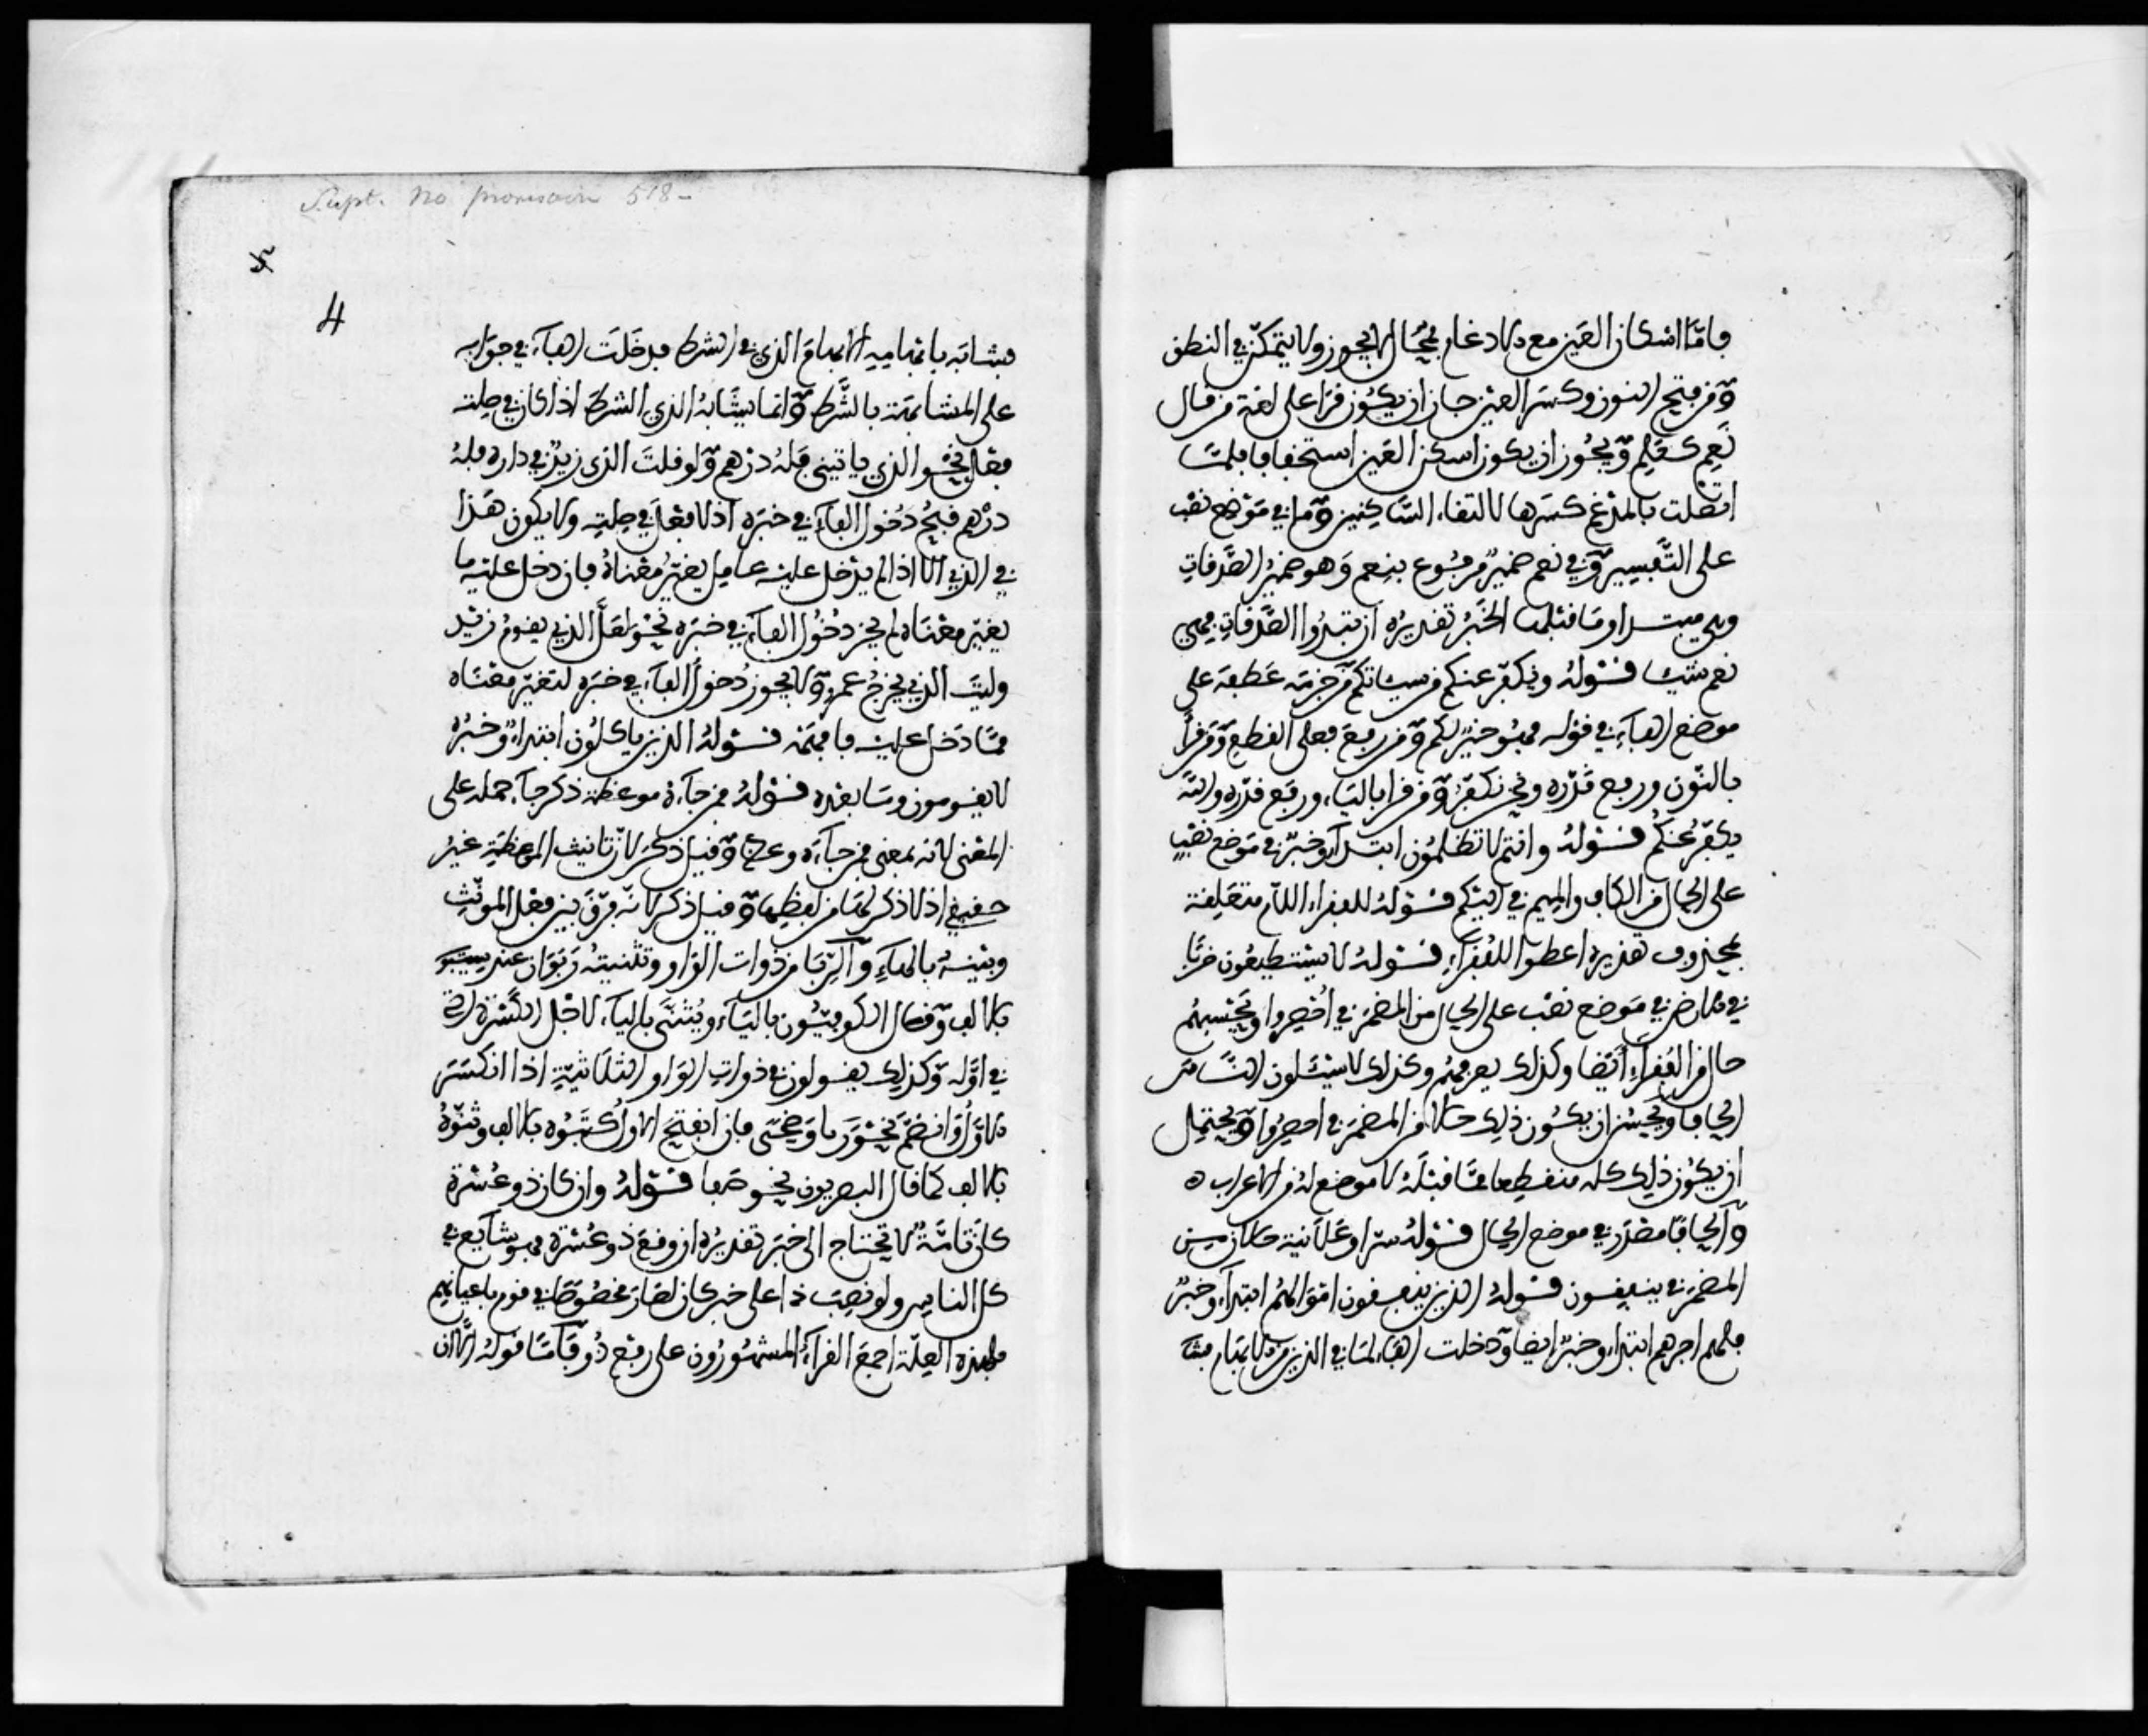 فاما اسكان العين مع الادغام فمحال لا يجوز ولا يتمكن في النطق
ومن فتح النون وكسر العين جاز ان يكون قرا على لغة من قال
نَعِم كعَلِم ويجوز ان يكون اسكن العين استخفافا فلما
اتصلت بالمدغم كسرها لالتقاء الساكنين وما في موضع نصب
على التفسير وفي نعم ضمير مرفوع بنعم وهو ضمير الصدقات
وهي مبتدا وما قبلها الخبر تقديره ان تبدوا الصدقات فهي
نعم شيئا قوله ويكفر عنكم من سيئاتكم من جزمه عطفه على
موضع الفاء في قوله فهو خير لكم ومن رفع فعلى القطع ومن قرا
بالنون ورفع قدره ونحن نكفر ومن قرا بالياء ورفع قدره والله
يكفر عنكم قوله وانتم لا تظلمون ابتداء وخبر في موضع نصب
على الحال من الكاف والميم في اليكم قوله للفقراء اللام متعلقة
بمحذوف تقديره اعطوا للفقراء قوله لا يستطيعون ضربا
في الارض في موضع نصب على الحال من المضمر في احصروا ويحسبهم
حال من الفقراء ايضا وكذلك يعرفهم وكذلك لا يسئلون الناس
الحافا ويحسن ان يكون ذلك حالا من المضمر في احصروا ويحتمل
ان يكون ذلك كله منقطعا مما قبله لا موضع له من الاعراب ه
والحافا مصدر في موضع الحال قوله سرا وعلانية حالان من
المضمر في ينفقون قوله الذين ينفقون اموالهم ابتداء وخبره
فلهم اجرهم ابتداء وخبر ايضا ودخلت الفاء لما في الذين من الابهام فشا
Supt. No provisoire 518-
4
فشابه بابهامه الابهام الذي في الشرط فدخلت الفاء في جوابه
على المشابهة بالشرط وانما يشابه الذي الشرط اذا كان في صلته
فعل نحو الذي ياتيني فله درهم ولو قلت الذي زيد في داره فله
درهم قبح دخول الفاء في خبره اذ لا فعل في صلته ولا يكون هذا
في الذي الا اذا لم يدخل عليه عامل يغير معناه فان دخل عليه ما
يغير معناه لم يجز دخول الفاء في خبره نحو لعل الذي يقوم زيد
وليت الذي يخرج عمرو ولا يجوز دخول الفاء في خبره لتغير معناه
مما دخل عليه فافهمه قوله الذين ياكلون ابتداء وخبره
لا يقومون وما بعده قوله فمن جاءه موعظة ذكر جاء حمله على
المعنى لانه بمعنى فمن جاءه وعظ وقيل ذكر لان تانيث الموعظة غير
حقيقي اذ لا ذكر لها من لفظها وقيل ذكر لانه فرق بين فعل المونث
وبينه بالهاء والربا من ذوات الواو وتثنيته ربوان عند سيبويه
بالالف وقال الكوفيون بالياء ويثنى بالياء لاجل الكسرة التي
في اوله وكذلك يقولون في ذوات الواو الثلاثية اذا انكسر
الاول او انضم نحو ربا وضحى فان انفتح الاول كتبوه بالالف وثنوه
بالالف كما قال البصريون نحو صفا قوله وان كان ذو عسرة
كان تامة لا تحتاج الى خبر تقديره ان وقع ذو عسرة فهو شايع في
كل الناس ولو نصبت ذا على خبر كان لصار مخصوصا في قوم باعيانهم
فلهذه العلة اجمع القراء المشهورون على رفع ذو فاما قوله الا ان